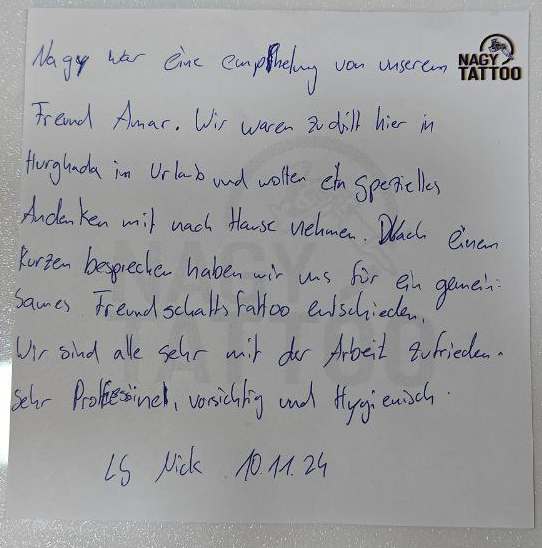 Nagy war eine empfhelung von unserem
NAGY
TATTOO
Freund Amar. Wir waren zu dritt hier in
Hurghada im Urlaub und wolten ein spezielles
Andenken mit nach Hause nehmen. Nach einem
kurzen besprechen haben wir uns für ein gemein-
sames Freundschaftsfattoo entschieden.
Wir sind alle sehr mit der Arbeit zufrieden.
sehr Professinel, vorsichtig und Hygienisch.
LG Nick 10.11.24
NAGY
TATTOO